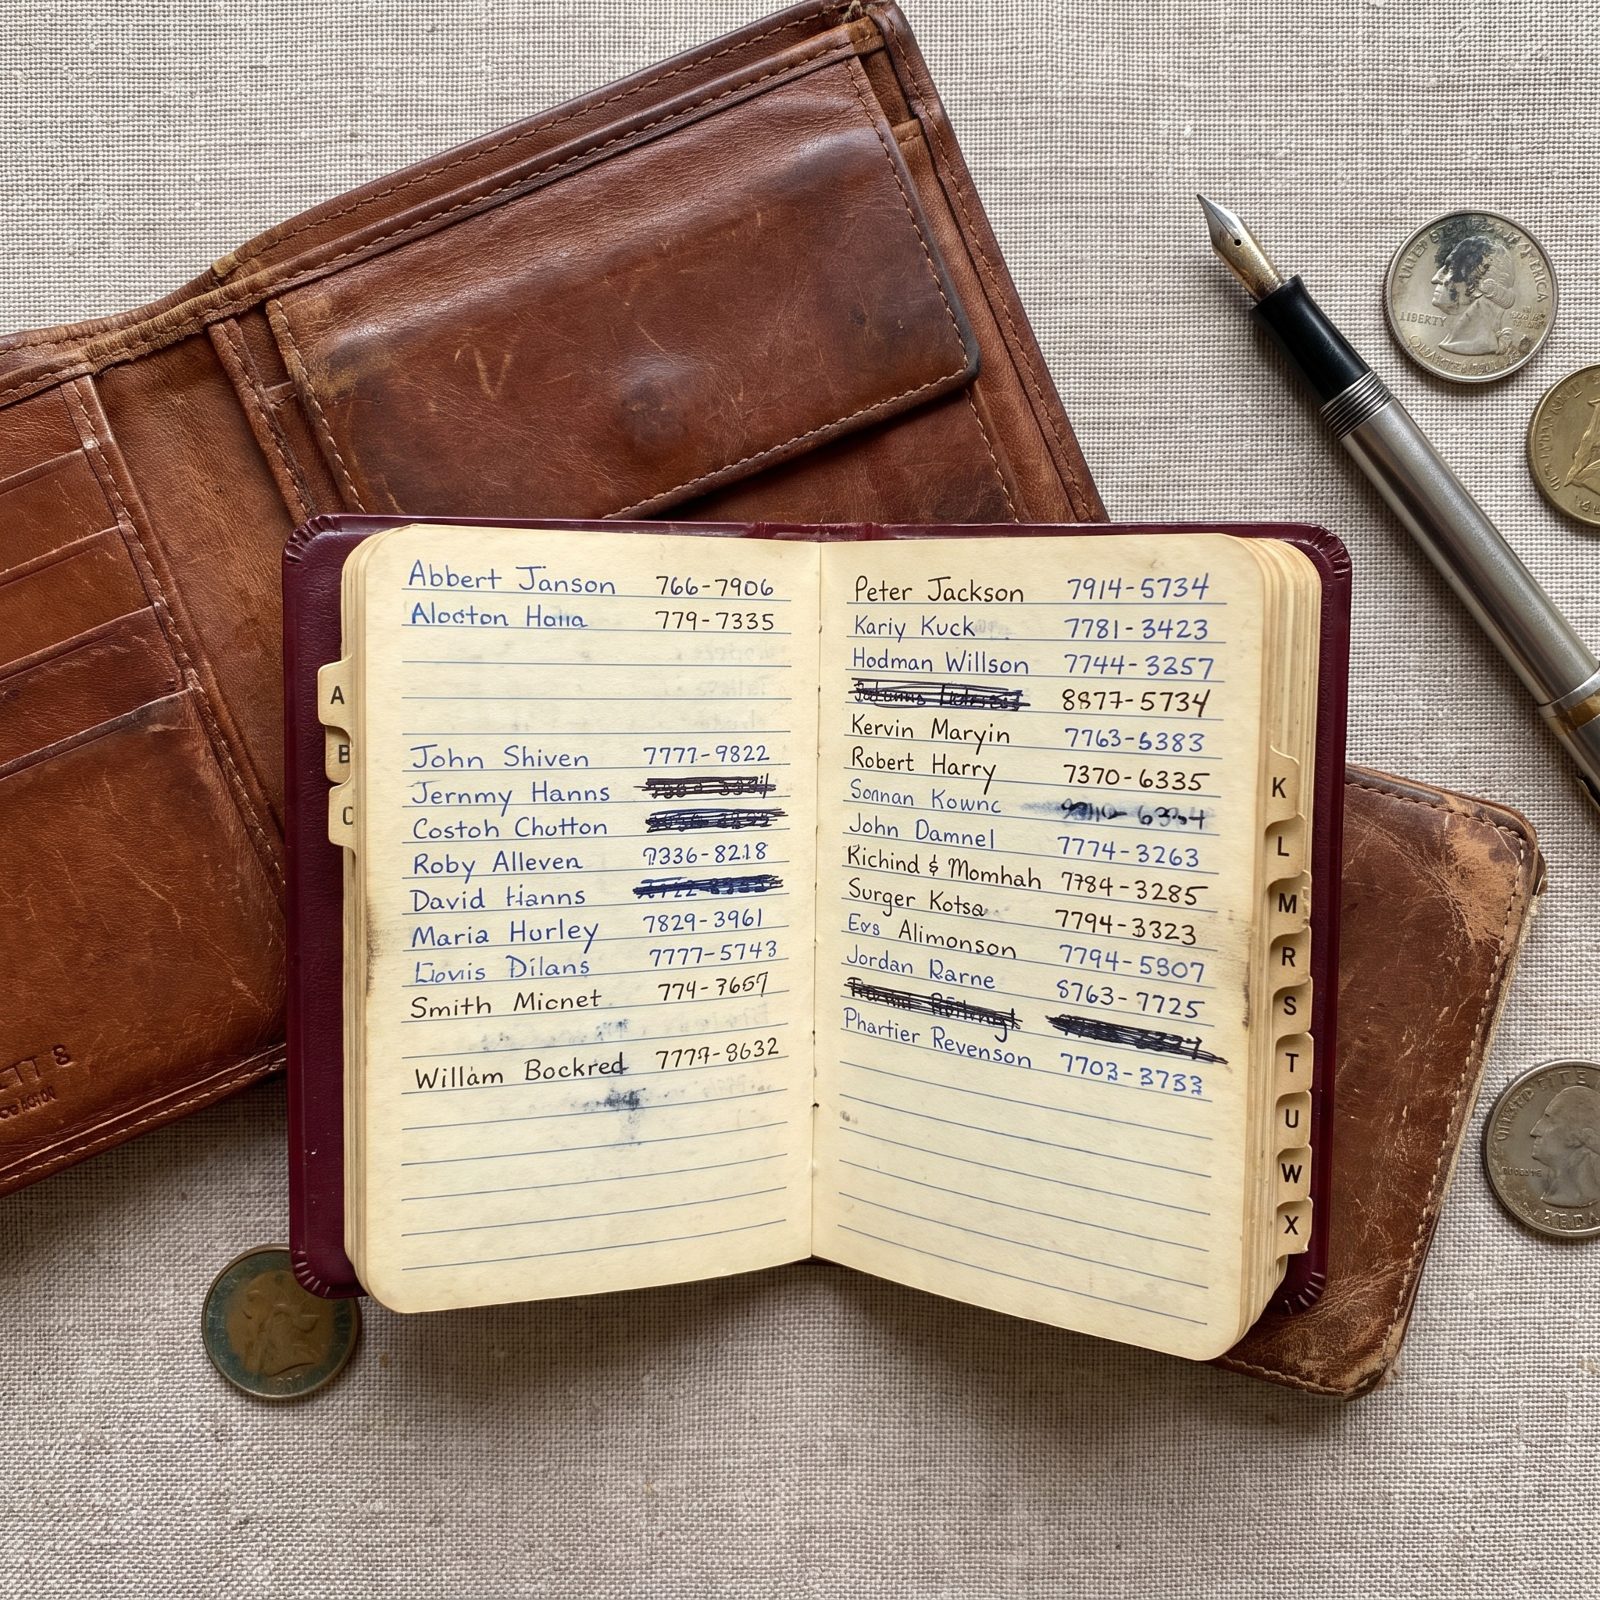 Abbert Janson 766-7906
Alocton Halla 779-7335
John Shiven 7777-9822
Jernmy Hanns
Costoh Chutton
Roby Alleven 7336-8218
David Hanns
Maria Hurley 7829-3961
Dilans 7777-5743
Smith Micnet 774-7657
Willam Bockred 7777-8632
A
B
C
Peter Jackson 7914-5734
Kariy Kuck 7781-3423
Hodman Willson 7744-3357
8877-5734
Kervin Maryin 7763-6383
Robert Harry 7370-6335
Sonnan Kownc
John Damnel 7774-3263
Richind & Momhah 7784-3285
Surger Kotsa 7794-3323
Alimonson 7794-5307
Jordan Rarne 8763-7725
Phartier Revenson 7703-3733
K
L
M
R
S
T
U
W
X
LIBERTY